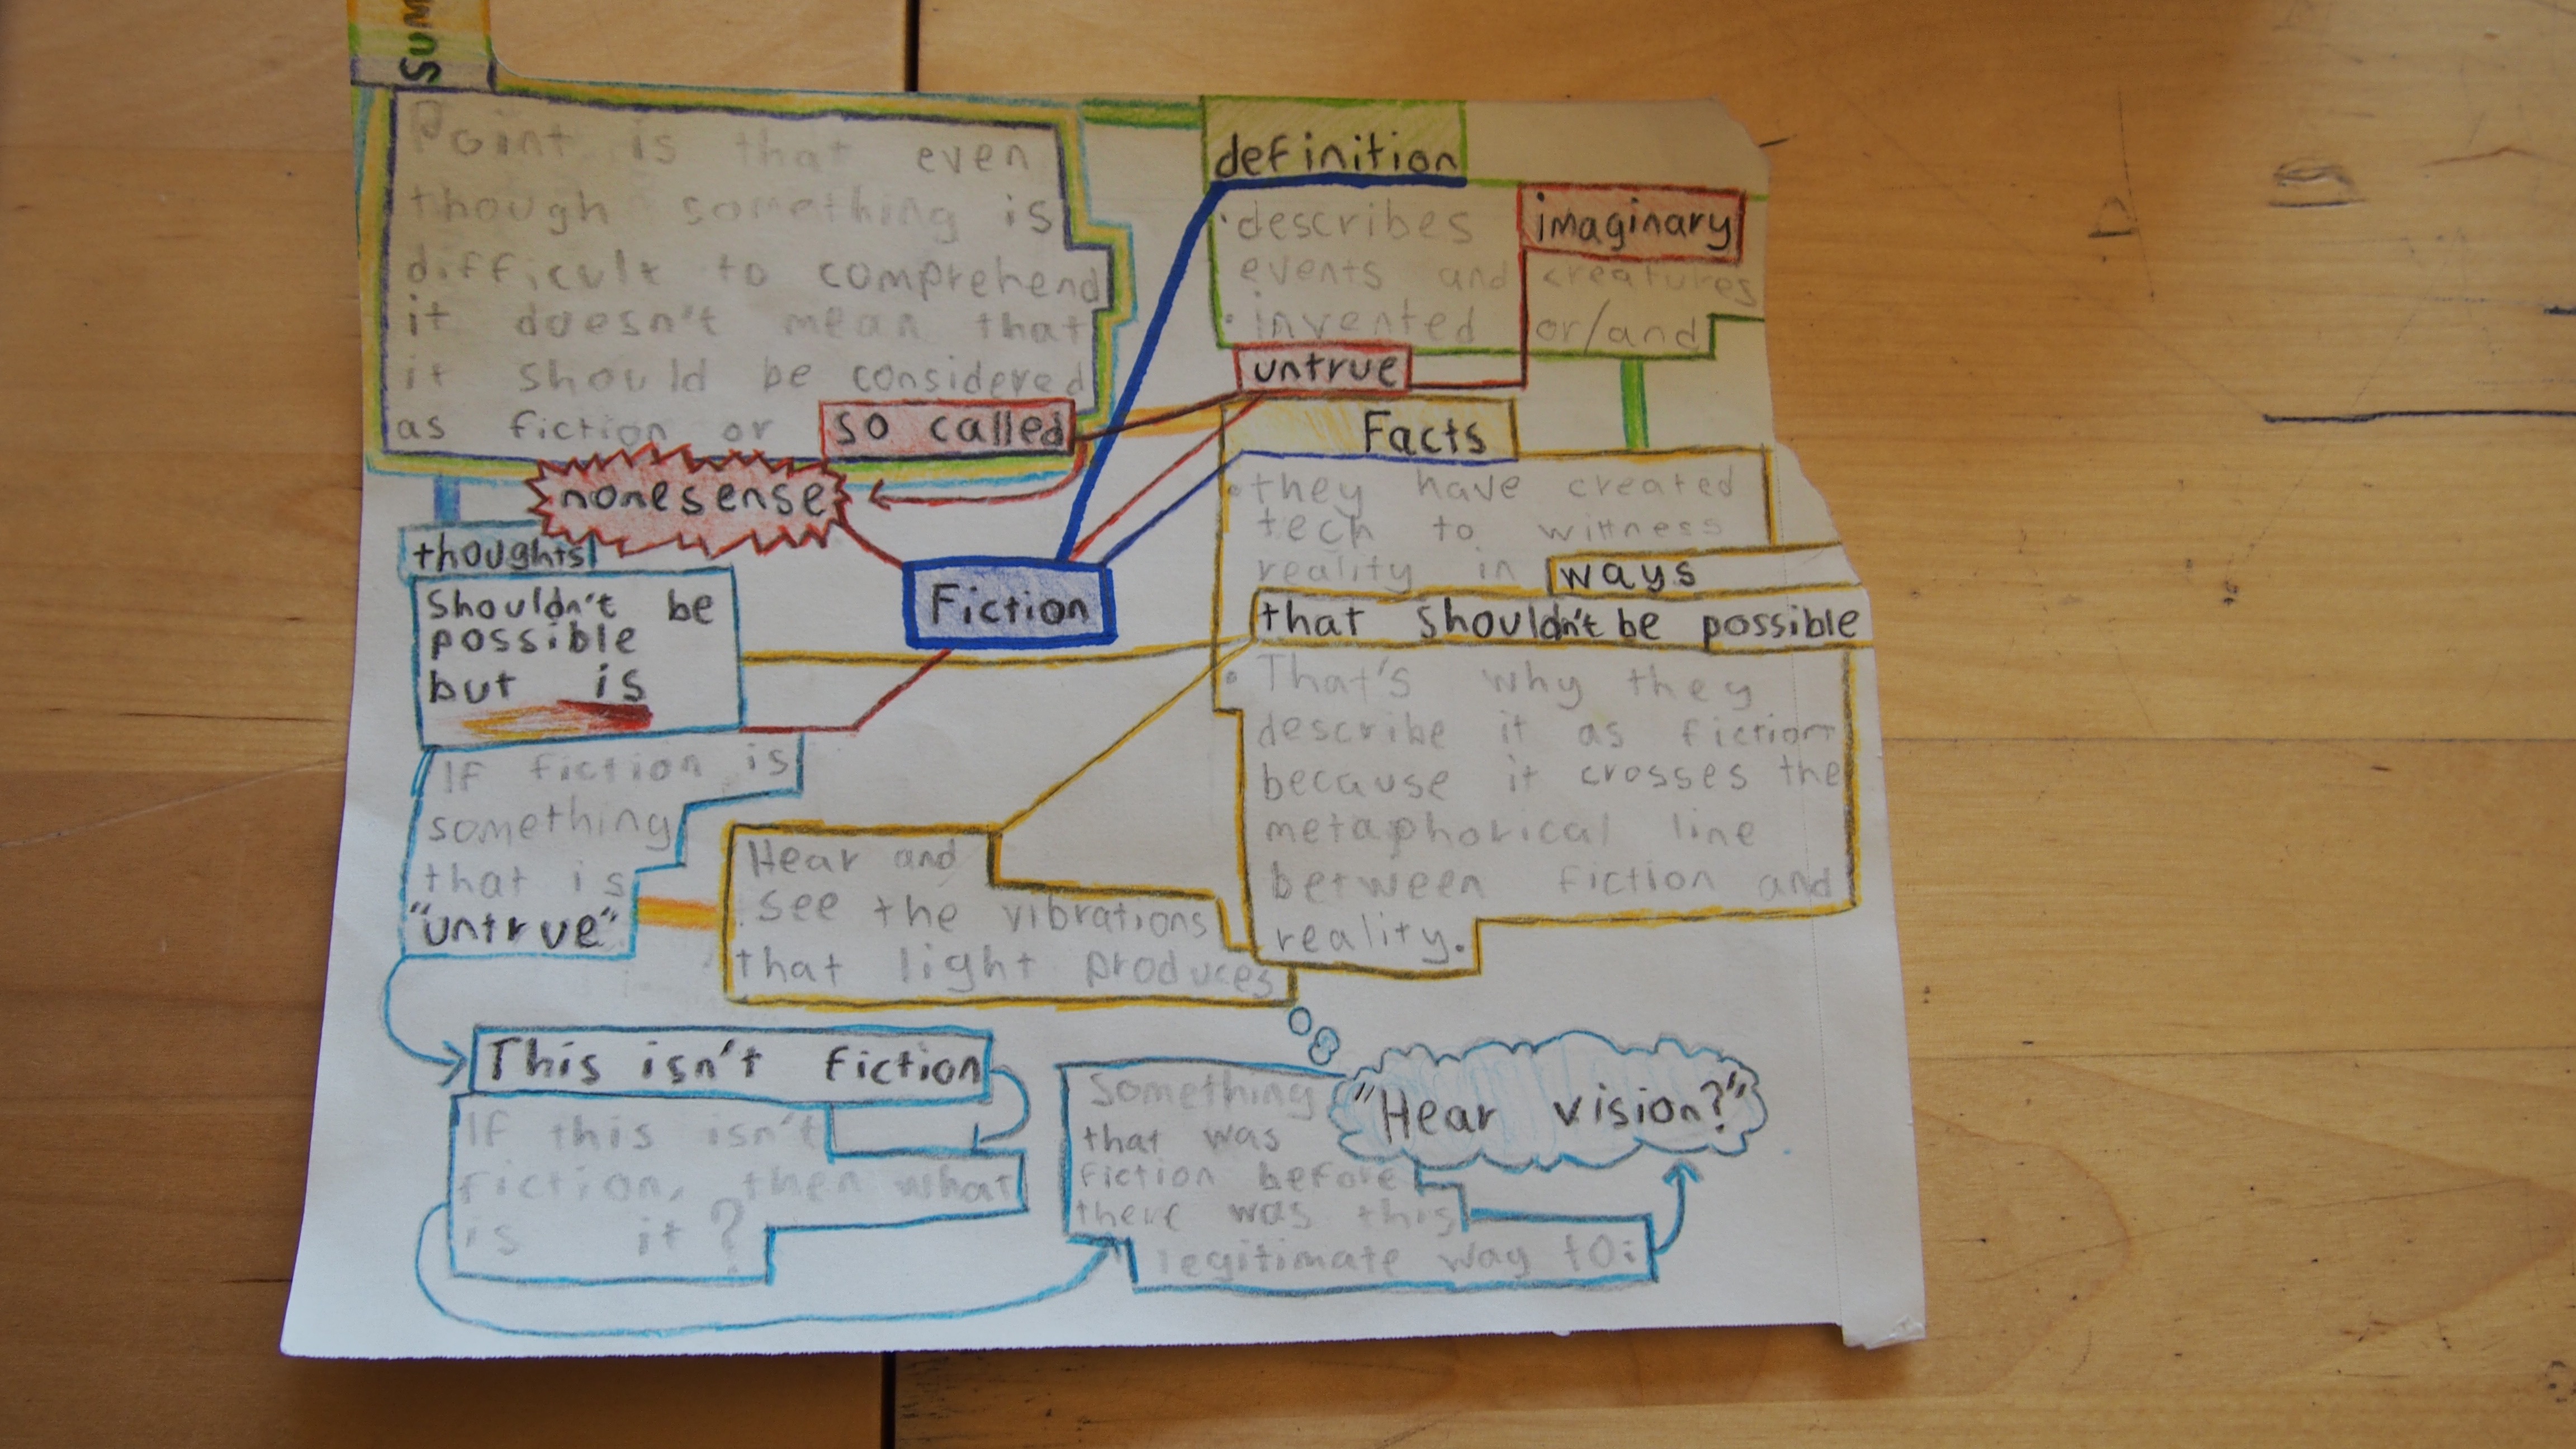 Sum
Point is that even
though something is
difficult to comprehend
it doesn't mean that
it should be considered
as fiction or so called
nonesense
definition
• describes imaginary
events and creatures
• invented or/and
untrue
Facts
• they have created
tech to wittness
reality in ways
that shouldn't be possible
• That's why they
describe it as fiction
because it crosses the
metaphorical line
between fiction and
reality.
Fiction
thoughts
Shouldn't be
possible
but is
If fiction is
something
that is
"untrue"
Hear and
see the vibrations
that light produces
This isn't fiction
If this isn't
fiction, then what
is it?
Something
that was
fiction before
there was this
legitimate way to:
"Hear vision?"